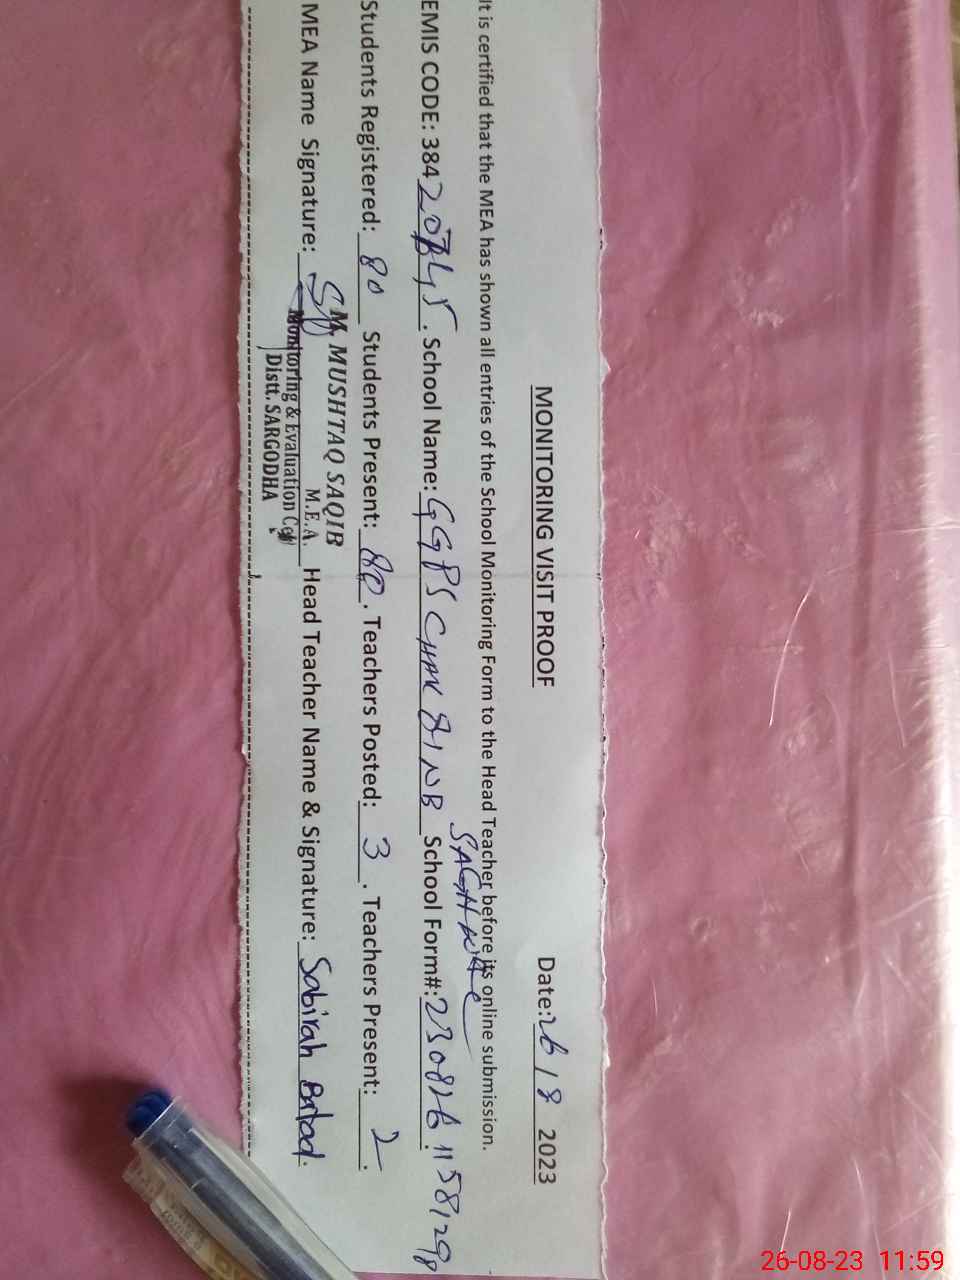 MONITORING VISIT PROOF Date: 26/8 2023
It is certified that the MEA has shown all entries of the School Monitoring Form to the Head Teacher before its online submission.
EMIS CODE: 384 . School Name: GGPS CHAK 81NB School Form#: 230826 1158129
Students Registered: 80 Students Present: 80. Teachers Posted: 3. Teachers Present: 2.
MEA Name Signature: Head Teacher Name & Signature: Sabirah
M. MUSHTAQ SAQIB
M.E.A.
Monitoring & Evaluation Cell
Distt. SARGODHA
26-08-23 11:59